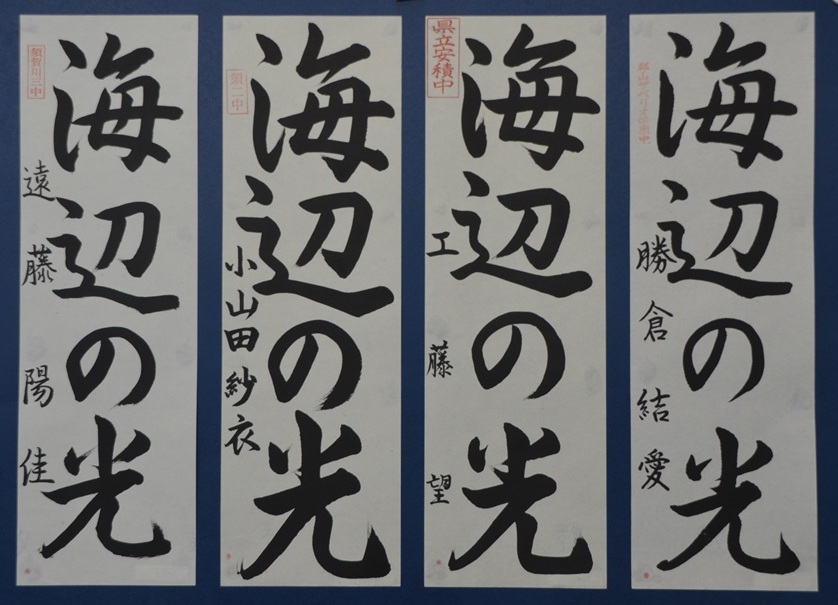 海辺の光
勝倉結愛
県立安積中
海辺の光
工藤望
須二中
海辺の光
小山田紗衣
須賀川三中
海辺の光
遠藤陽佳